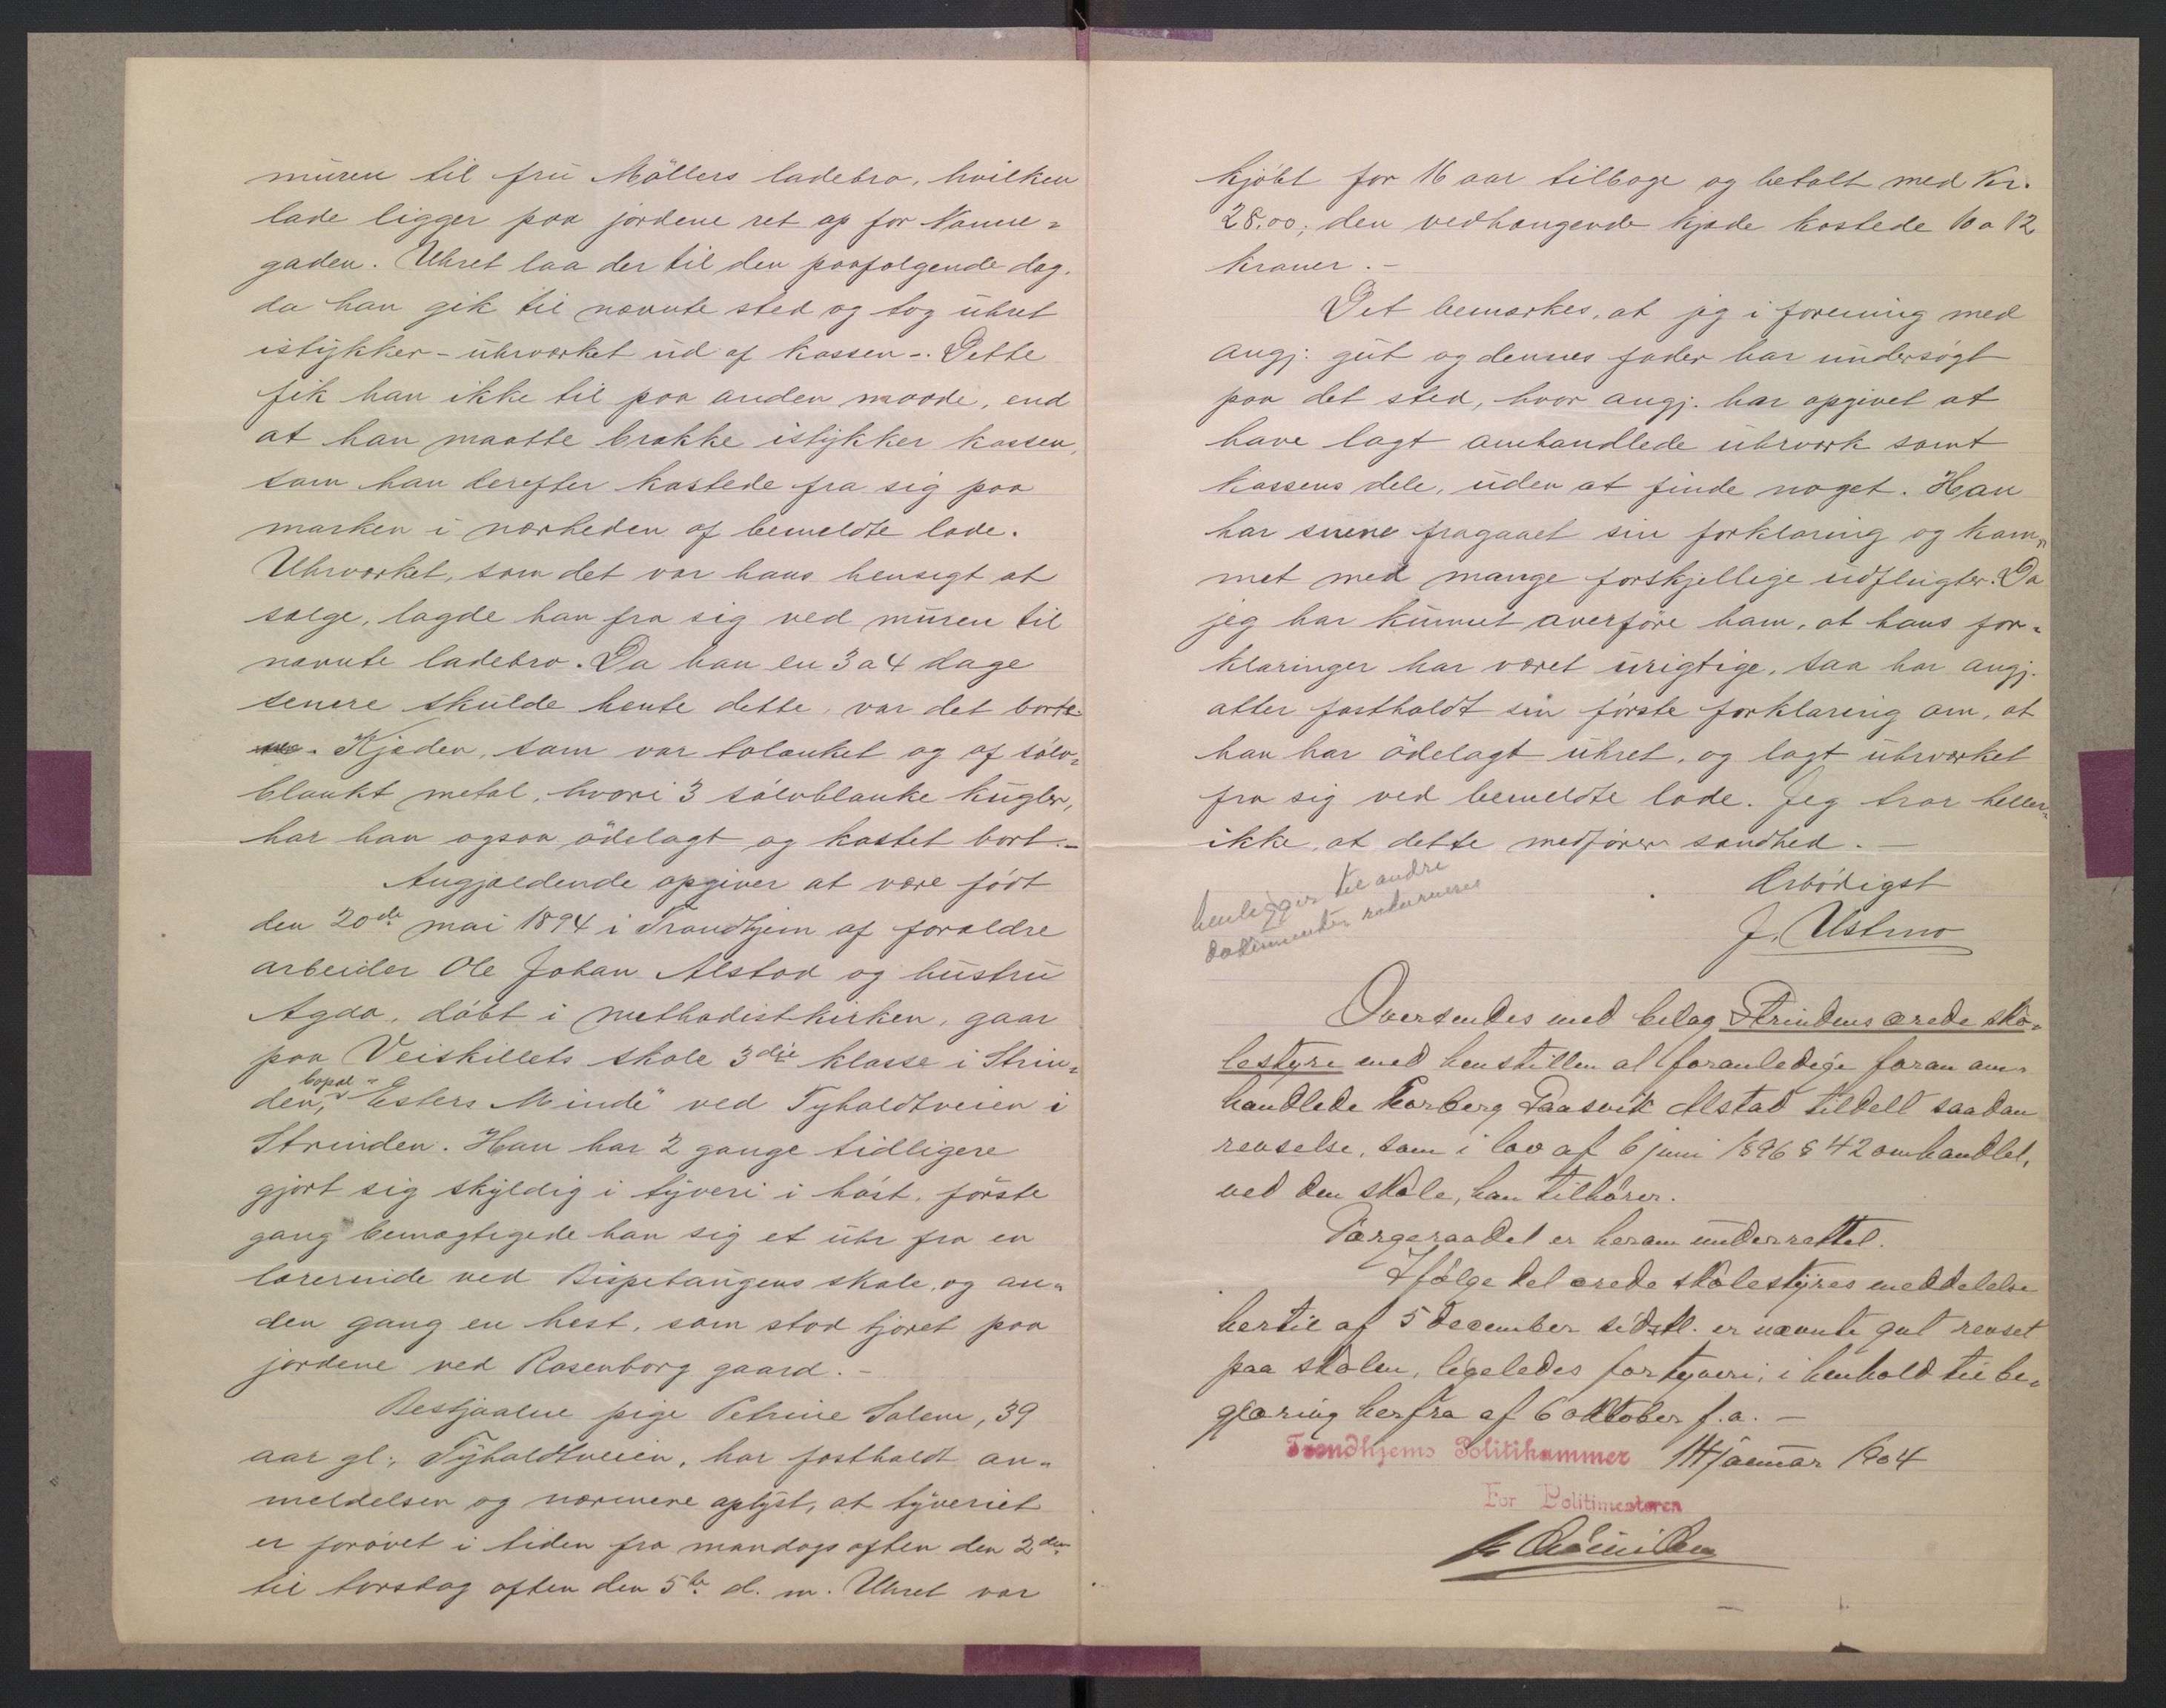 muren til fru Möllers ladebro, hvilken
lade ligger paa jordene ret op for Nanne-
gaden. Uhret laa der til den paafølgende dag,
da han gik til nævnte sted og tog uhret
istykker - uhrværket ud af kassen -. Dette
fik han ikke til paa anden maade, end
at han maatte brække istykker kassen,
som han derefter kastede fra sig paa
marken i nærheden af bemeldte lade.
Uhrværket, som det var hans hensigt at
sælge, lagde han fra sig ved muren til
nævnte ladebro. Da han en 3 a 4 dage
senere skulde hente dette, var det borte.
Kjæden, som var tolænket og af sölv-
blankt metal, hvori 3 sölvblanke kugler,
har han ogsaa ödelagt og kastet bort.-
Angjældende opgiver at være födt
den 20de mai 1894 i Trondhjem af forældre
arbeider Ole Johan Alstad og hustru
Agda, döbt i methodistkirken, gaar
paa Veiskillets skole 3die klasse i Strin-
den, bopæl "Esters Minde" ved Tyholdtveien i
Strinden. Han har 2 gange tidligere
gjort sig skyldig i tyveri i höst, förste
gang bemægtigede han sig et uhr fra en
lærerinde ved Bispehaugens skole, og an-
den gang en hest, som stod tjoret paa
jordene ved Rosenborg gaard.-
Bestjaalne pige Petrine Salem, 39
aar gl., Tyholdtveien, har fastholdt an-
meldelsen og nærmere oplyst, at tyveriet
er forövet i tiden fra mandags aften den 2den
til torsdag aften den 5te d. m. Uhret var
kjöbt for 16 aar tilbage og betalt med Kr.
28.00; den vedhængende kjæde kostede 10 a 12
kroner.-
Det bemærkes, at jeg i forening med
angj. gut og dennes fader har undersögt
paa det sted, hvor angj. har opgivet at
have lagt omhandlede uhrværk samt
kassens dele, uden at finde noget. Han
har siden fragaaet sin forklaring og kom-
met med mange forskjellige udflugter. Da
jeg har kunnet overföre ham, at hans for-
klaringer har været urigtige, saa har angj.
atter fastholdt sin förste forklaring om, at
han har ödelagt uhret, og lagt uhrværket
fra sig ved bemeldte lade. Jeg tror heller
ikke, at dette medförer sandhed.-
Ærbödigst
J. Ustmo
henlægges til andre
dokumenter returneres
Oversendes med bilag Strindens ærede sko-
lestyre med henstillen at foranledige foran om-
handlede Torberg Paasvik Alstad tildelt saadan
revselse, som i lov af 6 juni 1896 § 42 omhandlet,
ved den skole, han tilhører.
Værgeraadet er herom underrettet.
Ifølge det ærede skolestyres meddelelse
hertil af 5 december sidstl. er nævnte gut revset
paa skolen, ligeledes for tyveri, i henhold til be-
gjæring herfra af 6 oktober f. a. -
Trondhjems Politikammer 14 januar 1904
For Politimesteren